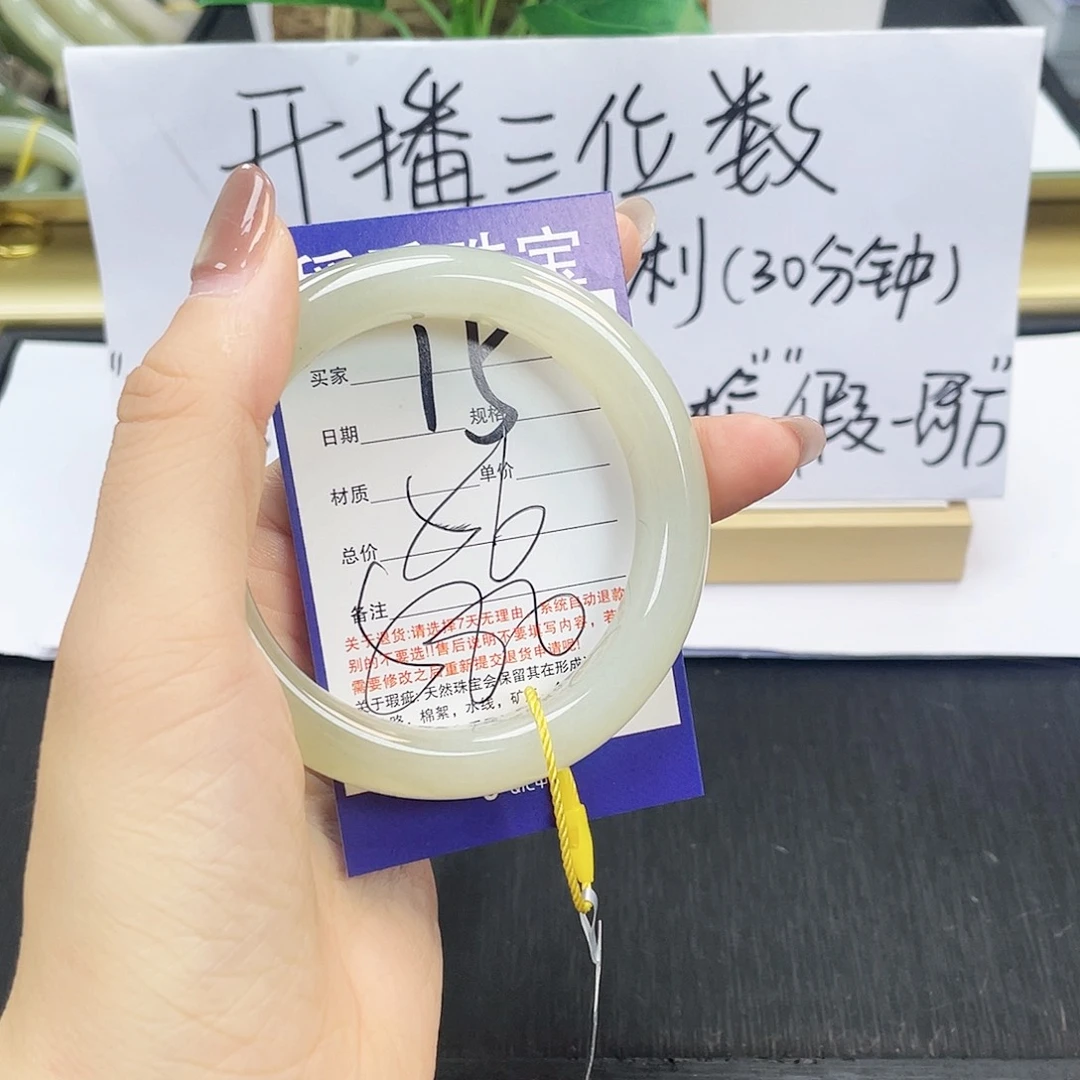 开播三位数
利(30分钟)
"假一罚万"
珠宝
15
买家
规格
日期
单价
材质
总价
备注
关于退货:请选择7天无理由，系统自动退款
别的不要选!!售后说明不要填写内容，若
需要修改之后重新提交退货申请呢!
关于瑕疵:天然珠宝会保留其在形成
棉絮，水线，矿